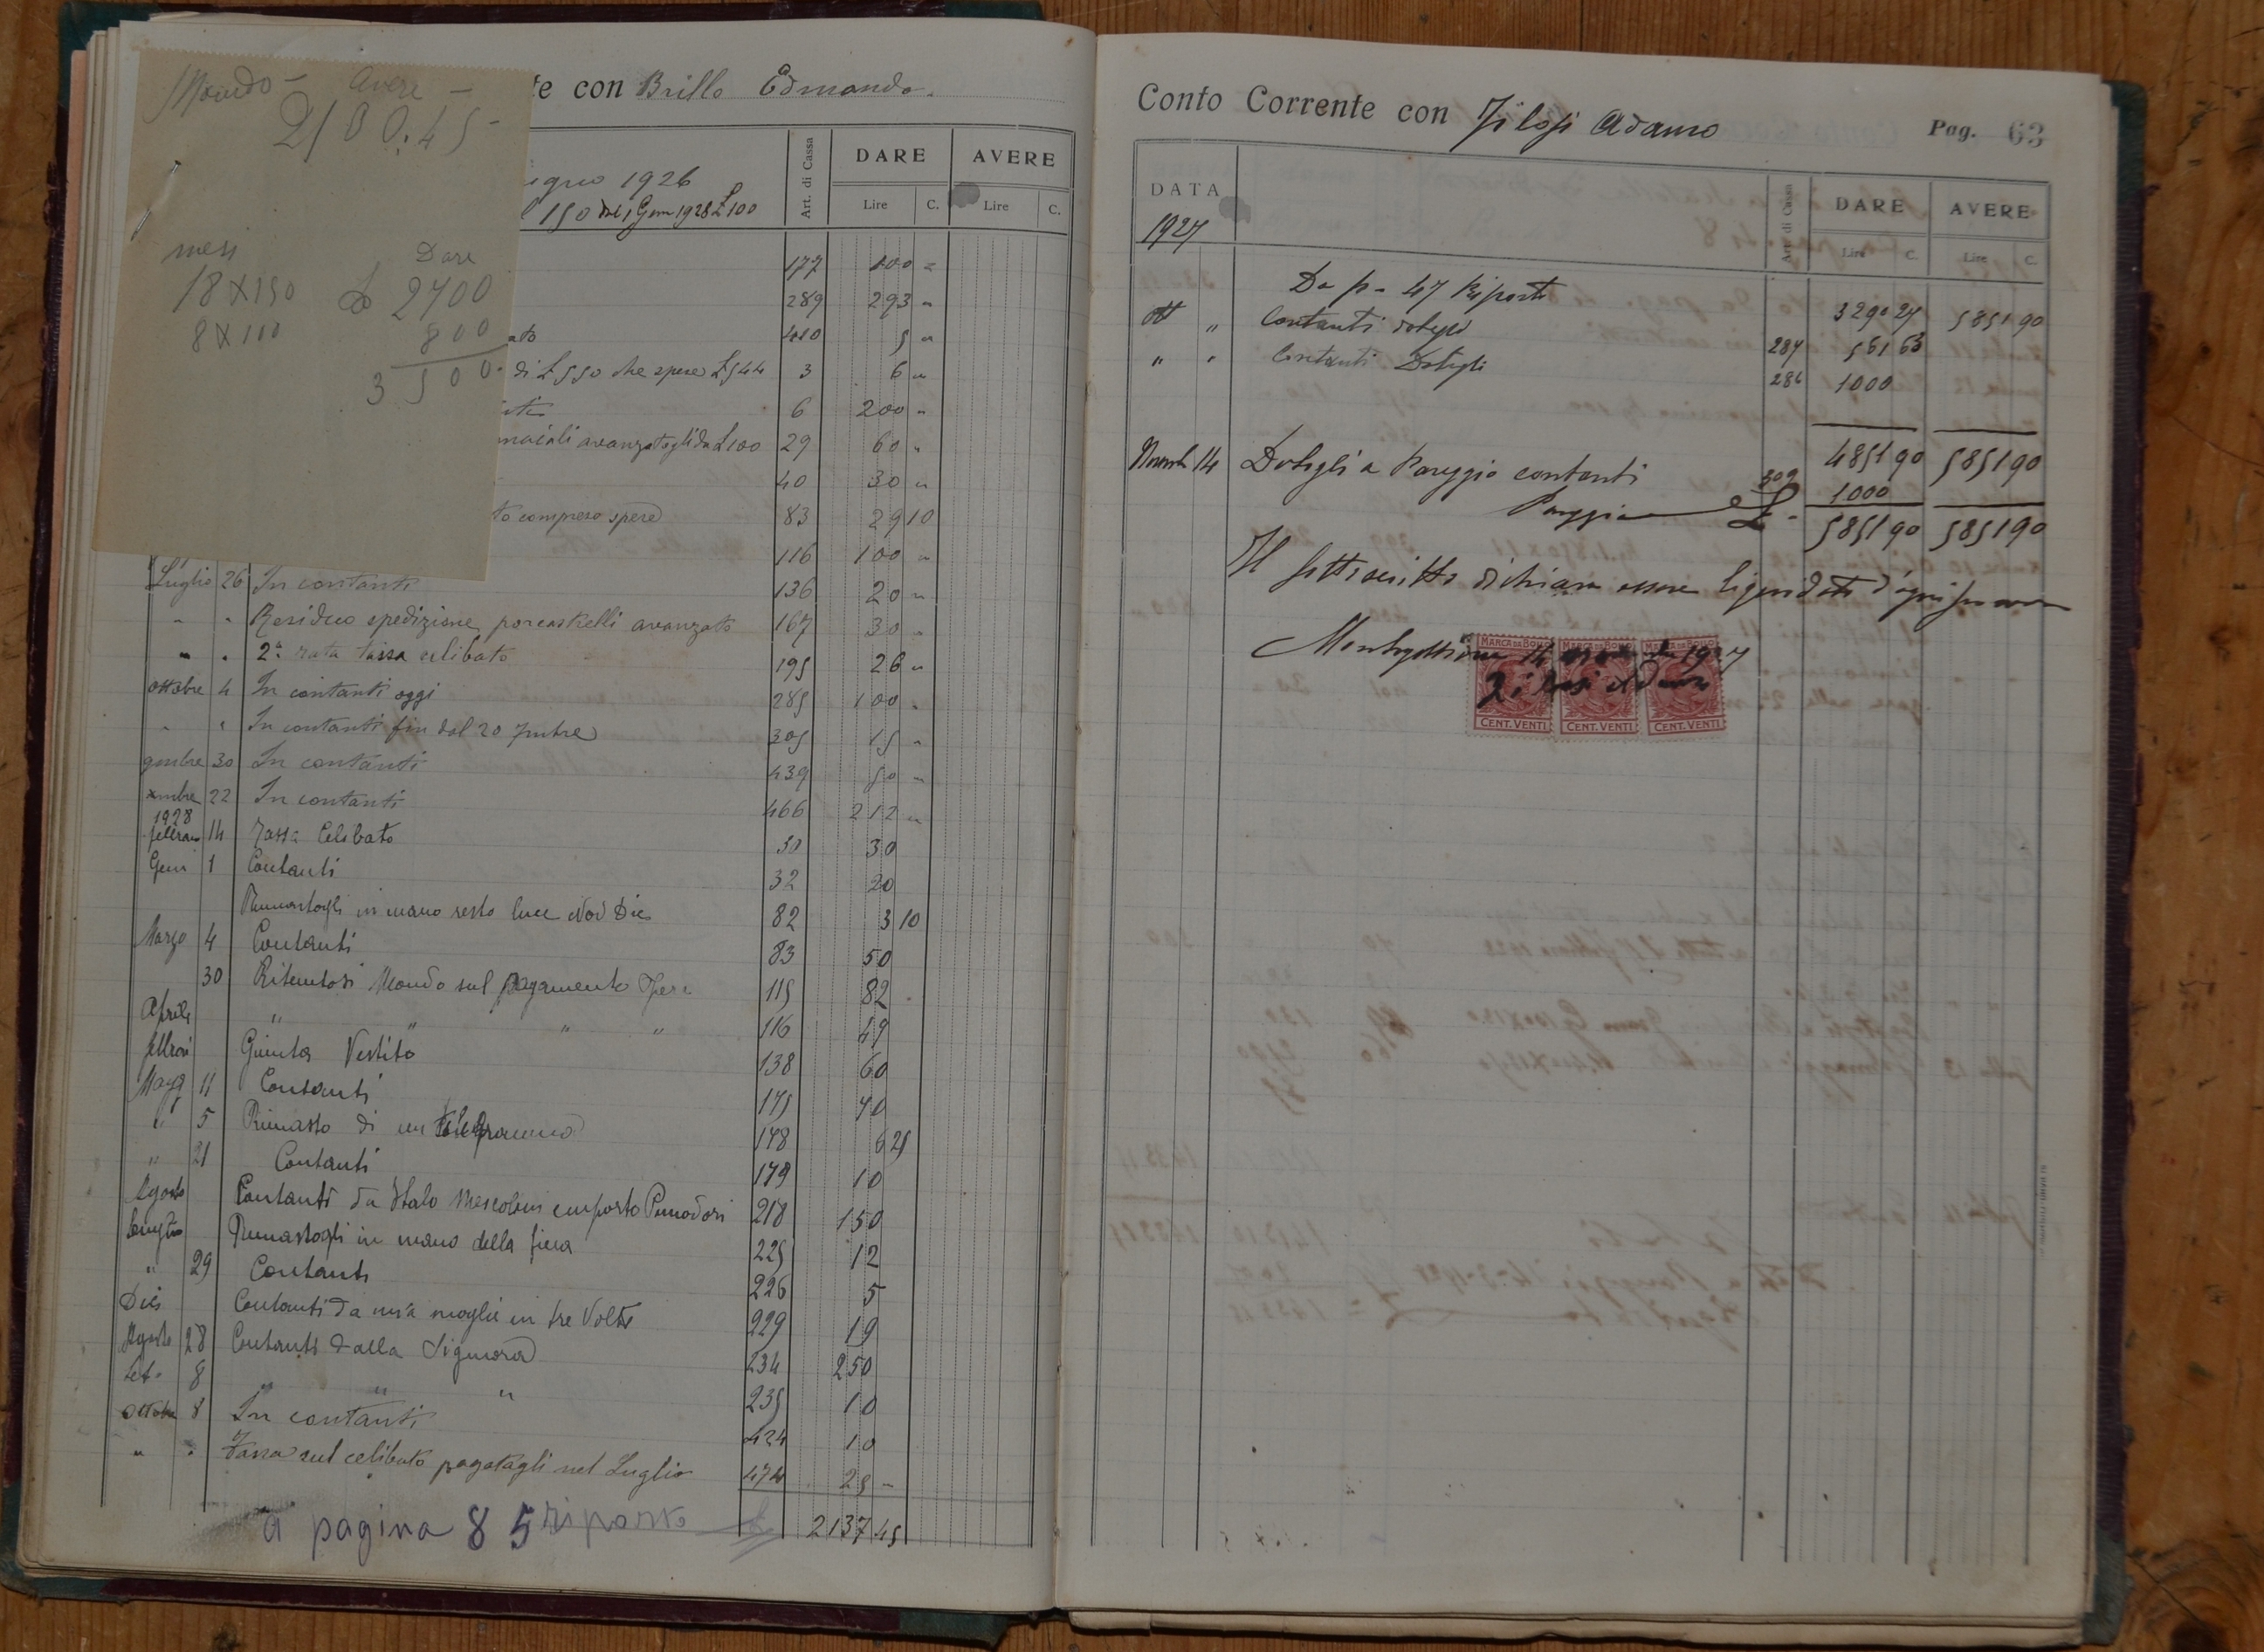 Mondo - Avere -
2100.45
mesi Dare
18 X 150 £ 2700
8 X 100 800
3500
te con Brillo Edmondo.
Art. di Cassa DARE AVERE
Lire C. Lire C.
1926
150 dal 1 Gen 1928 £ 100
177 100 =
289 293 "
410 5 "
di £ 550 che spese £ 544 3 6 "
6 200 "
maiali avanzatogli da £ 100 29 60 "
40 30 "
to compreso spese 83 29 10
116 100 "
Luglio 26 In contanti 136 20 "
" " Residuo spedizione porcastrelli avanzato 167 30 "
" " 2a. rata tassa celibato 195 26 "
Ottobre 4 In contanti oggi 285 100 "
" " In contanti fin dal 20 7mbre 305 15 "
9mbre 30 In contanti 439 50 "
Xmbre 22 In contanti 466 212 "
1928
Febbraio 14 Tassa Celibato 30 30
Gen 1 Contanti 32 20
Rimastogli in mano resto luce Nov Dic 82 3 10
Marzo 4 Contanti 83 50
30 Ritentosi Mondo sul pagamento 115 82
Aprile " " " " 116 49
Giunta Vestito 138 60
11 Contanti 175 70
" 5 Rimasto di un 178 6 25
" 21 Contanti 179 10
Agosto Contanti da Italo importo Pomodori 218 150
Rimastogli in mano della fiera 225 12
" 29 Contanti 226 5
Contanti da mia moglie in tre Volte 229 19
Agosto 28 Contanti dalla Signora 234 250
Set. 8 " " 235 10
Ottobre 8 In contanti 424 10
" " Tassa sul celibato pagatagli nel Luglio 474 25 -
a pagina 85 riporto £ 2137 45
Conto Corrente con Filosi Adamo Pag. 63
DATA Art. di Cassa DARE AVERE
1927 Lire C. Lire C.
Da p - 47 Riporti 3290 27 5851 90
Ott " Contanti datigli 287 561 63
" " Contanti Datigli 286 1000
4851 90 5851 90
Novemb 14 Datigli a Pareggio contanti 309 1000
Pareggio £ - 5851 90 5851 90
Il sottoscritto dichiara essere liquidato d'ogni suo avere
14 1927
MARCA DA BOLLO MARCA DA BOLLO MARCA DA BOLLO
Filosi Adamo
CENT. VENTI CENT. VENTI CENT. VENTI